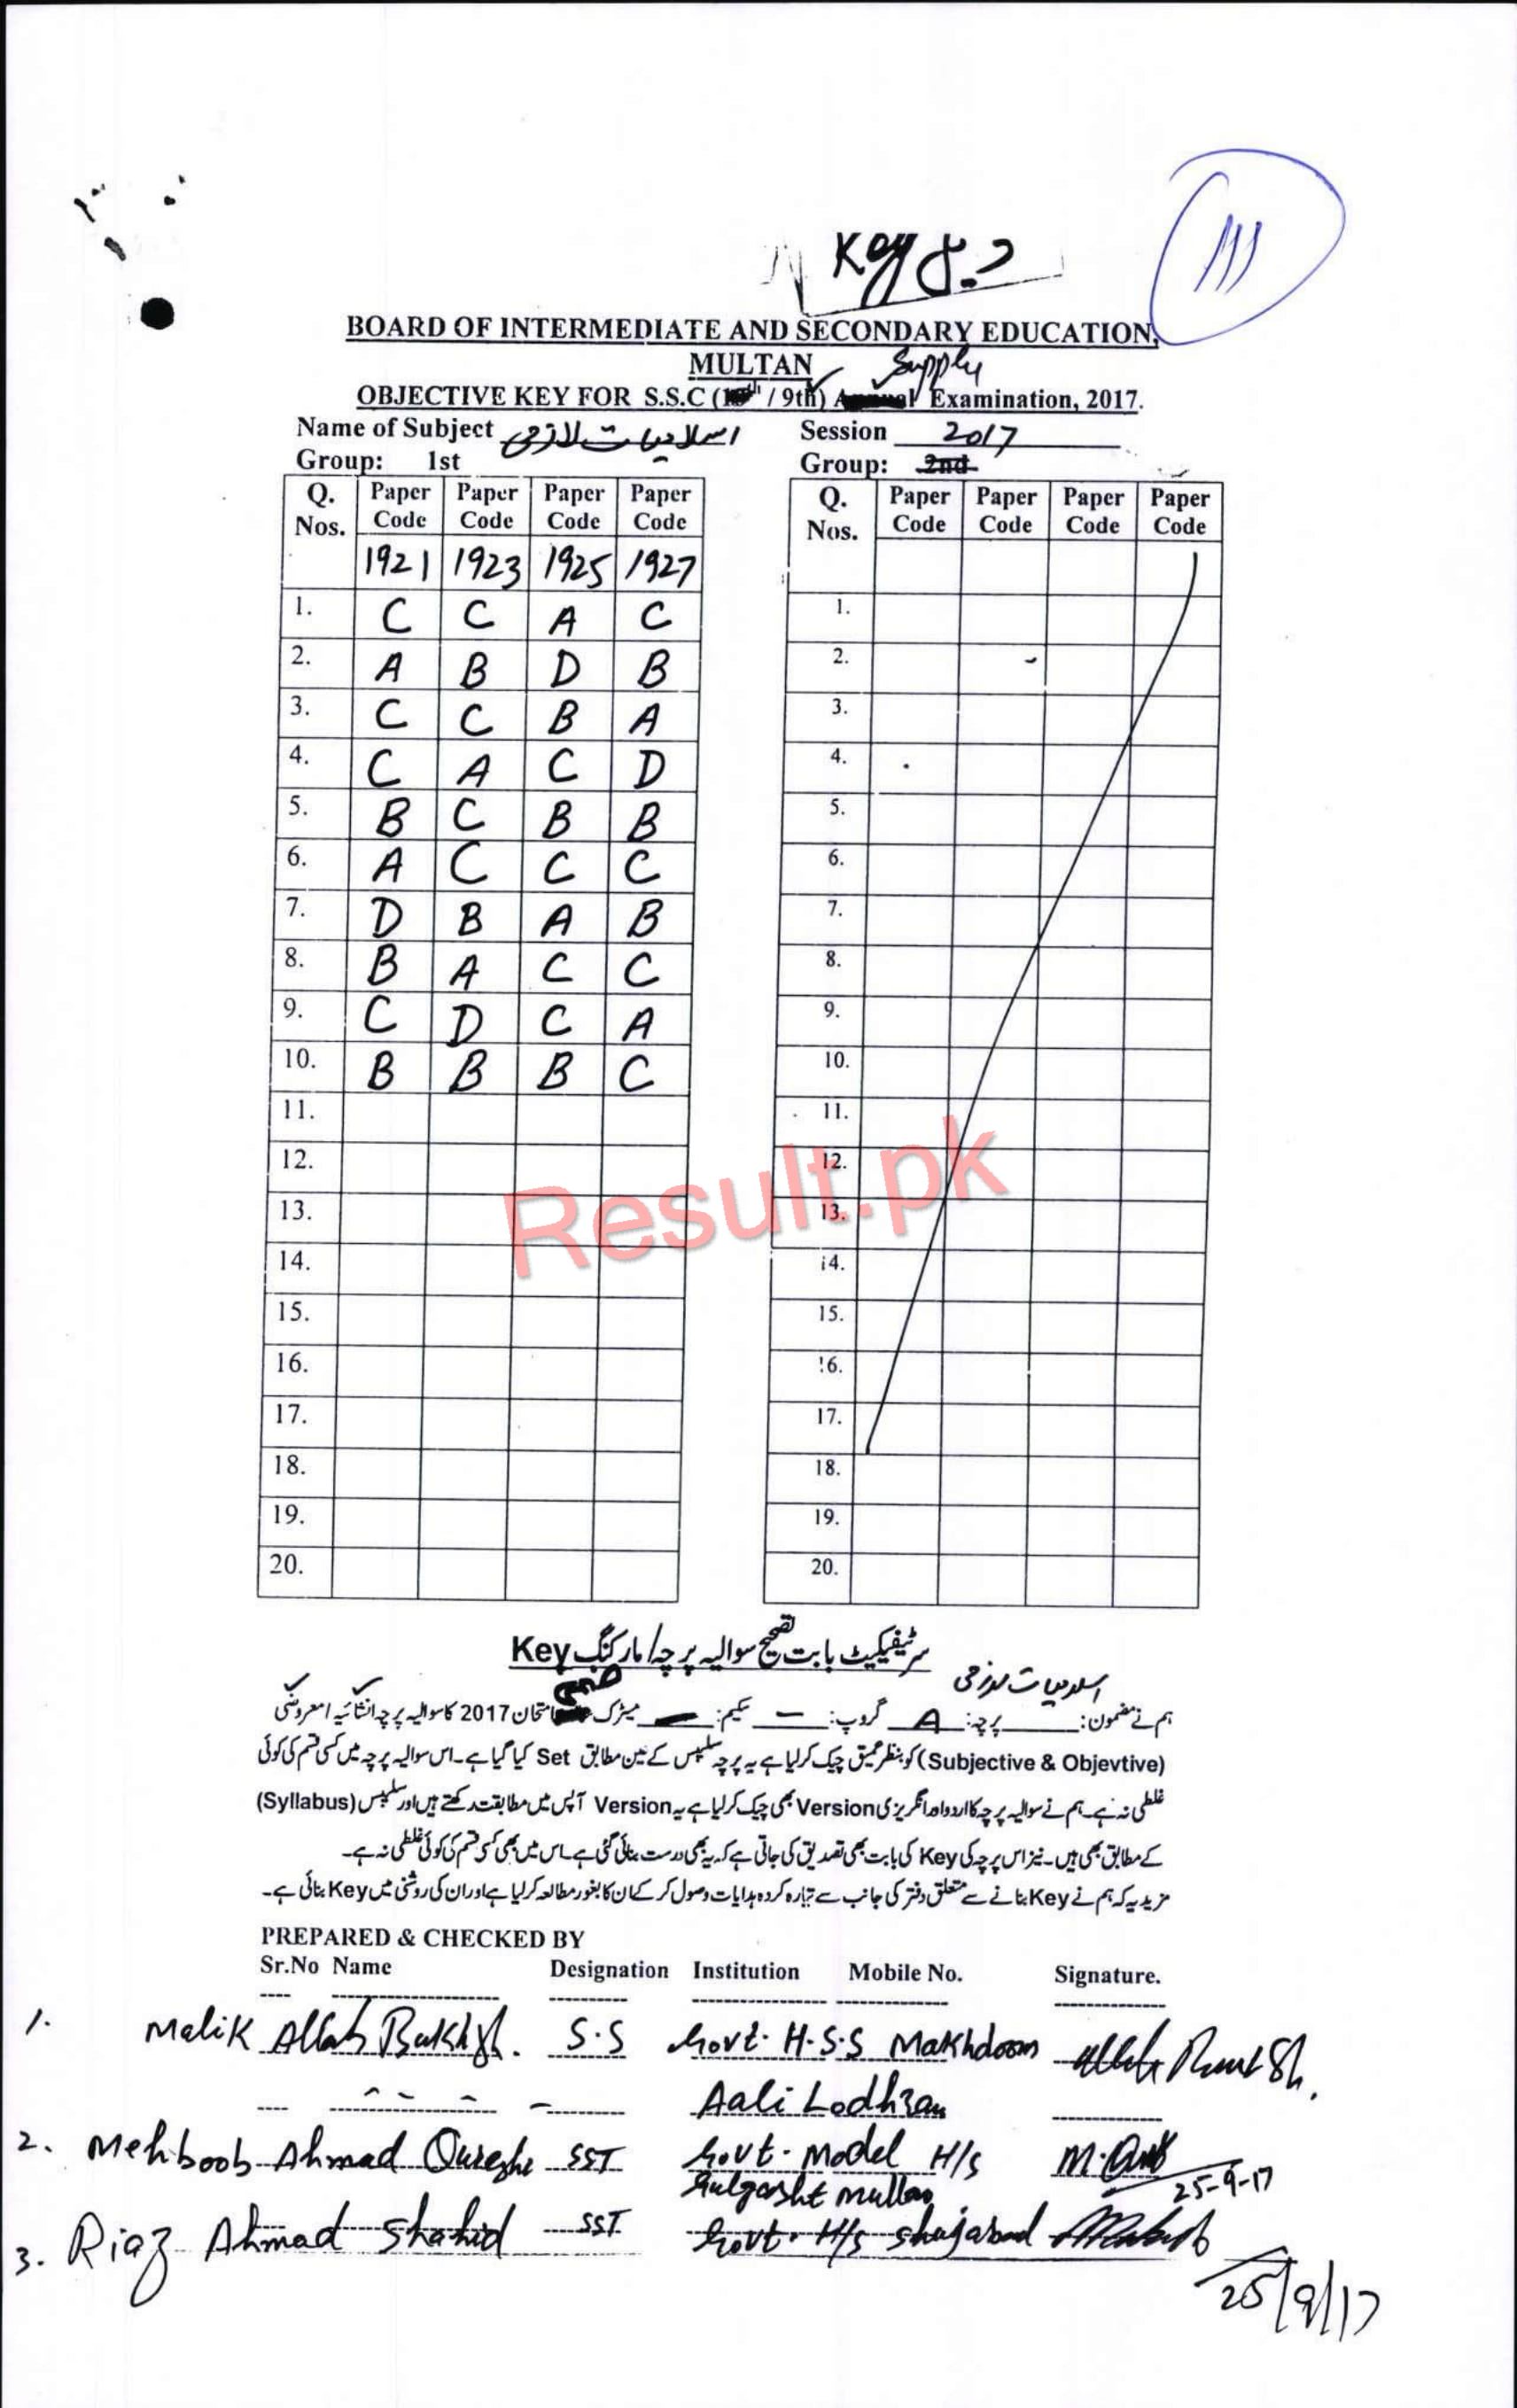 Key
BOARD OF INTERMEDIATE AND SECONDARY EDUCATION,
MULTAN
Supply
OBJECTIVE KEY FOR S.S.C (10th / 9th) Annual Examination, 2017.
Name of Subject اسلامیات لازمی Session 2017
Group: 1st Group: 2nd
Q. Nos. Paper Code Paper Code Paper Code Paper Code
1921 1923 1925 1927
1. C C A C
2. A B D B
3. C C B A
4. C A C D
5. B C B B
6. A C C C
7. D B A B
8. B A C C
9. C D C A
10. B B B C
11.
12.
13.
14.
15.
16.
17.
18.
19.
20.
Q. Nos. Paper Code Paper Code Paper Code Paper Code
1.
2.
3.
4.
5.
6.
7.
8.
9.
10.
11.
12.
13.
14.
15.
16.
17.
18.
19.
20.
Result.pk
سرٹیفکیٹ بابت تصحیح سوالیہ پرچہ/مارکنگ Key
اسلامیات لازمی
ہم نے مضمون: پرچہ: A گروپ: — سکیم: — میٹرک ضمنی امتحان 2017 کا سوالیہ پرچہ انشائیہ امعروضی
(Subjective & Objevtive) کو بنظر عمیق چیک کرلیا ہے یہ پرچہ سلیبس کے عین مطابق Set کیا گیا ہے۔ اس سوالیہ پرچہ میں کسی قسم کی کوئی
غلطی نہ ہے۔ ہم نے سوالیہ پرچہ کا اردو اور انگریزی Version بھی چیک کرلیا ہے یہ Version آپس میں مطابقت رکھتے ہیں اور سلیبس (Syllabus)
کے مطابق بھی ہیں۔ نیز اس پرچہ کی Key کی بابت بھی تصدیق کی جاتی ہے کہ یہ بھی درست بنائی گئی ہے۔ اس میں بھی کسی قسم کی کوئی غلطی نہ ہے۔
مزید یہ کہ ہم نے Key بنانے سے متعلق دفتر کی جانب سے تیارہ کردہ ہدایات وصول کر کے ان کا بغور مطالعہ کرلیا ہے اور ان کی روشنی میں Key بنائی ہے۔
PREPARED & CHECKED BY
Sr.No Name Designation Institution Mobile No. Signature.
1. Malik Allah Bukhsh. S.S Govt. H.S.S Makhdoom
Aali Lodhran
2. Mehboob Ahmad Qureshi SST Govt. Model H/S
Gulgasht Multan 25-9-17
3. Riaz Ahmad Shahid SST Govt. H/s Shujabad
25/9/17